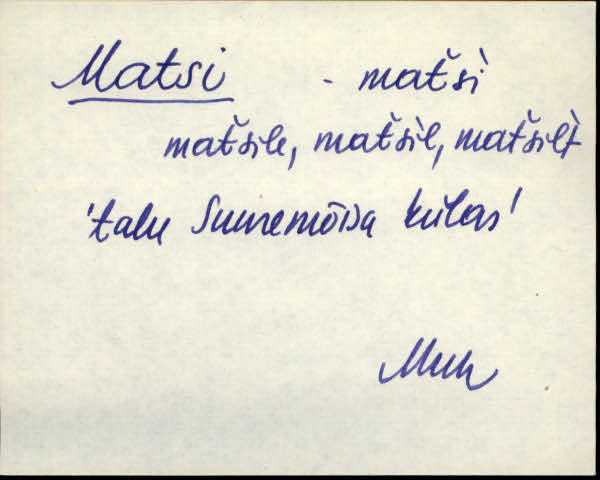 Matsi - matši̇̀
matšile, matši̇̀l, matšili̇̀
'talu Suuremõisa külas'
Muh